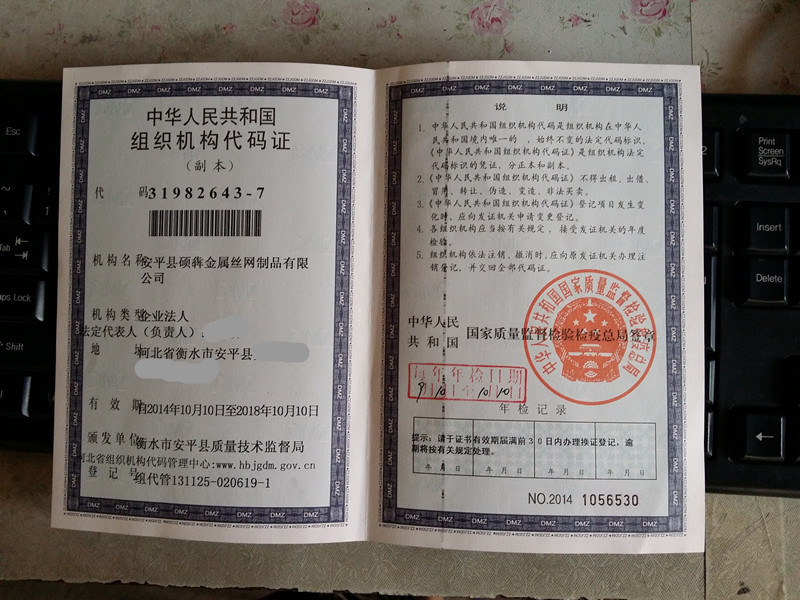 中华人民共和国
组织机构代码证
（副本）
代 码31982643-7
机构名称安平县硕犇金属丝网制品有限
公司
机构类型企业法人
法定代表人（负责人）
地 河北省衡水市安平县
有效期自2014年10月10日至2018年10月10日
颁发单位衡水市安平县质量技术监督局
河北省组织机构代码管理中心:www.hbjgdm.gov.cn
登记号组代管131125-020619-1
说 明
1. 中华人民共和国组织机构代码是组织机构在中华人
民共和国境内唯一的、始终不变的法定代码标识，
《中华人民共和国组织机构代码证》是组织机构法定
代码标识的凭证，分正本和副本。
2.《中华人民共和国组织机构代码证》不得出租、出借、
冒用、转让、伪造、变造、非法买卖。
3.《中华人民共和国组织机构代码证》登记项目发生变
化时，应向发证机关申请变更登记。
4. 各组织机构应当按有关规定，接受发证机关的年度
检验。
5. 组织机构依法注销、撤消时，应向原发证机关办理注
销登记，并交回全部代码证。
中华人民
共和国
国家质量监督检验检疫总局签章
中华人民共和国国家质量监督检验检疫总局
每年年检日期
9月10日至10月10日
年检记录
提示：请于证书有效期届满前30日内办理换证登记，逾
期将按有关规定处理。
年 月 日 年 月 日 年 月 日 年 月 日
NO.2014 1056530
DMZ
Esc
Tab
Caps Lock
Shift
Print
Screen
SysRq
Insert
Delete